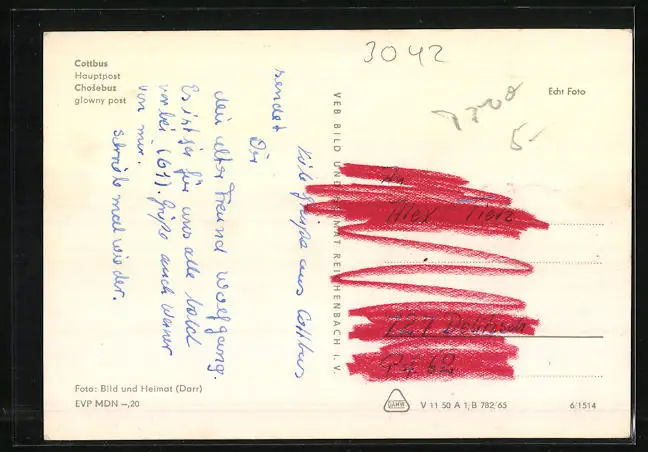 Cottbus
Hauptpost
Chośebuz
głowny post
3042
Echt Foto
5-
VEB BILD UND HEIMAT REICHENBACH I. V.
Viele Grüße aus Cottbus
sendet
Dir
dein alter Freund Wolfgang.
Es ist ja für uns alle bald
vorbei (61). Grüße auch Werner
von mir.
Schreib mal wieder.
An
727 Delitzsch
Foto: Bild und Heimat (Darr)
EVP MDN –,20
V 11 50 A 1/B 782/65
6/1514